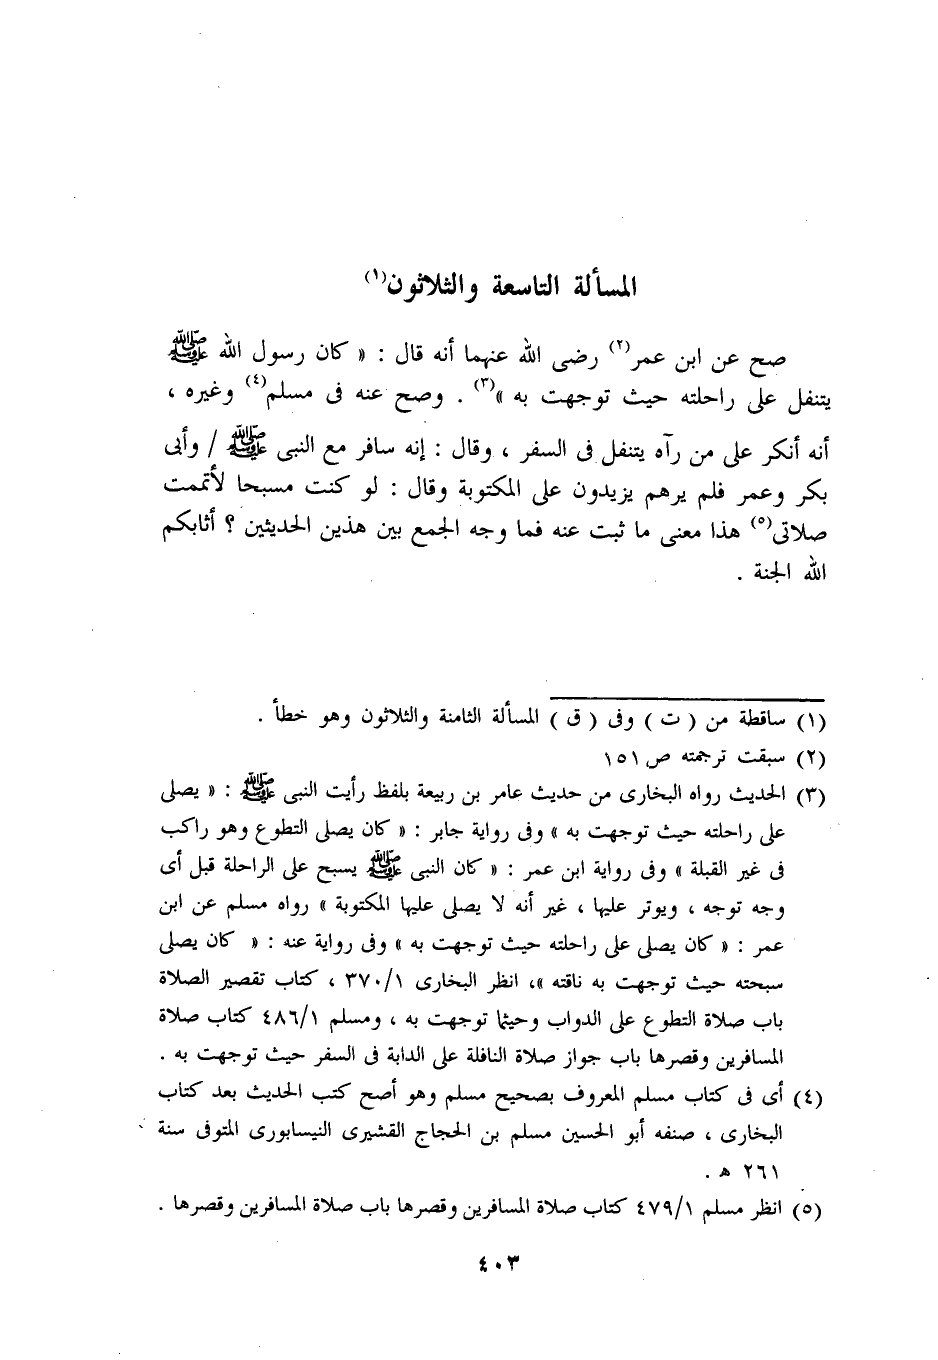 المسألة التاسعة والثلاثون(١)
صح عن ابن عمر(٢) رضى الله عنهما أنه قال : « كان رسول الله ﷺ
يتنفل على راحلته حيث توجهت به »(٣) . وصح عنه فى مسلم(٤) وغيره ،
أنه أنكر على من رآه يتنفل فى السفر ، وقال : إنه سافر مع النبى ﷺ / وأبى
بكر وعمر فلم يرهم يزيدون على المكتوبة وقال : لو كنت مسبحا لأتممت
صلاتى(٥) هذا معنى ما ثبت عنه فما وجه الجمع بين هذين الحديثين ؟ أثابكم
الله الجنة .
(١) ساقطة من ( ت ) وفى ( ق ) المسألة الثامنة والثلاثون وهو خطأ .
(٢) سبقت ترجمته ص ١٥١
(٣) الحديث رواه البخارى من حديث عامر بن ربيعة بلفظ رأيت النبى ﷺ : « يصلى
على راحلته حيث توجهت به » وفى رواية جابر : « كان يصلى التطوع وهو راكب
فى غير القبلة » وفى رواية ابن عمر : « كان النبى ﷺ يسبح على الراحلة قبل أى
وجه توجه ، ويوتر عليها ، غير أنه لا يصلى عليها المكتوبة » رواه مسلم عن ابن
عمر : « كان يصلى على راحلته حيث توجهت به » وفى رواية عنه : « كان يصلى
سبحته حيث توجهت به ناقته »، انظر البخارى ٣٧٠/١ ، كتاب تقصير الصلاة
باب صلاة التطوع على الدواب وحيثما توجهت به ، ومسلم ٤٨٦/١ كتاب صلاة
المسافرين وقصرها باب جواز صلاة النافلة على الدابة فى السفر حيث توجهت به .
(٤) أى فى كتاب مسلم المعروف بصحيح مسلم وهو أصح كتب الحديث بعد كتاب
البخارى ، صنفه أبو الحسين مسلم بن الحجاج القشيرى النيسابورى المتوفى سنة
٢٦١ هـ .
(٥) انظر مسلم ٤٧٩/١ كتاب صلاة المسافرين وقصرها باب صلاة المسافرين وقصرها .
٤٠٣